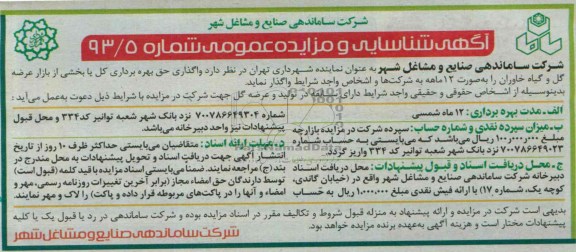 شرکت ساماندهی صنایع و مشاغل شهر
آگهی شناسایی و مزایده عمومی شماره ۹۳/۵
شرکت ساماندهی صنایع و مشاغل شهر به عنوان نماینده شهرداری تهران در نظر دارد واگذاری حق بهره برداری کل یا بخشی از بازار عرضه
گل و گیاه خاوران را به‌صورت ۱۲ ماهه به شرکت‌ها و اشخاص واجد شرایط واگذار نماید.
بدینوسیله از اشخاص حقوقی و حقیقی واجد شرایط دارای در تولید و عرضه گل جهت شرکت در مزایده با شرایط ذیل دعوت به‌عمل می‌آید :
الف ـ مدت بهره برداری: ۱۲ ماه شمسی
ب ـ میزان سپرده نقدی و شماره حساب: سپرده شرکت در مزایده بازارچه
مبلغ ۱۰۰,۰۰۰,۰۰۰ ریال می‌باشد که می‌بایستی به حساب شماره
۷۰۰۷۸۶۶۴۹۰۲۳ نزد بانک شهر شعبه توانیر کد ۳۳۴ واریز گردد.
ج ـ محل دریافت اسناد و قبول پیشنهادات: محل دریافت اسناد
دبیرخانه شرکت ساماندهی صنایع و مشاغل شهر واقع در (خیابان گاندی،
کوچه یک، شماره ۱۷) با ارائه فیش نقدی مبلغ ۱,۰۰۰,۰۰۰ ریال به حساب
شماره ۷۰۰۷۸۶۶۴۹۳۰۴ نزد بانک شهر شعبه توانیر کد ۳۳۴ و محل قبول
پیشنهادات نیز واحد دبیرخانه می‌باشد.
د ـ مهلت ارائه اسناد: متقاضیان می‌بایستی حداکثر ظرف ۱۰ روز از تاریخ
انتشار آگهی جهت دریافت اسناد و تحویل پیشنهادات به محل مندرج در
بند (ج) مراجعه نمایند. ضمناً می‌بایستی اسناد مزایده با قید کلمه (قبول است)
توسط دارندگان حق امضاء مجاز (برابر آخرین تغییرات روزنامه رسمی، مهر و
امضاء و آنها را در پاکت‌های مربوطه قرار داده و پاکت) را لاک و مهر نمایند.
بدیهی است شرکت در مزایده و ارائه پیشنهاد به منزله قبول شروط و تکالیف مقرر در اسناد مزایده بوده و شرکت ساماندهی در رد یا قبول یک یا کلیه
پیشنهادات مختار است و هزینه آگهی به‌عهده برنده مزایده خواهد بود.
شرکت ساماندهی صنایع و مشاغل شهر